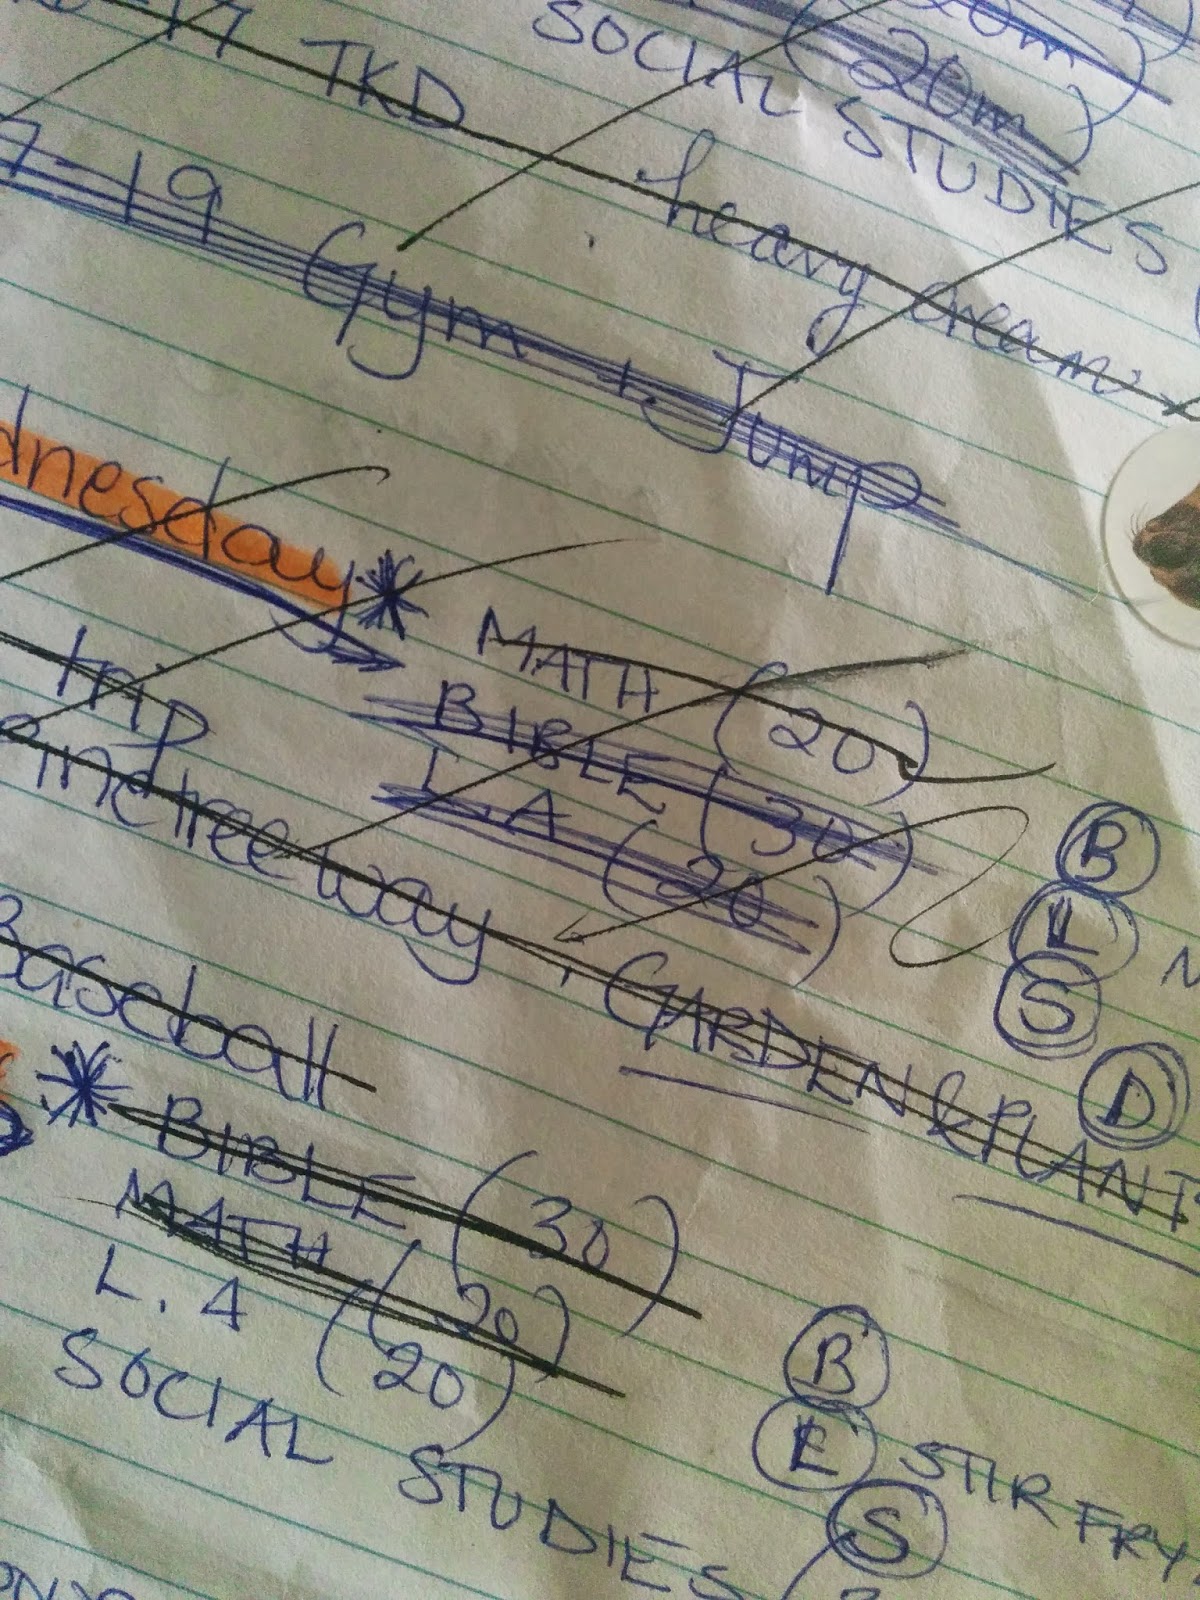 20m)
(20m)
SOCIAL STUDIES
17 TKD
heavy cream
-19 Gym + Jump
dnesday *
MATH (20)
BIBLE (30)
L.A (20)
trip
treeway. GARDEN & PLANT
Baseball
B
L
S
D
* BIBLE (30)
MATH (20)
L.A (20)
SOCIAL STUDIES
B
L STIR FRY
S